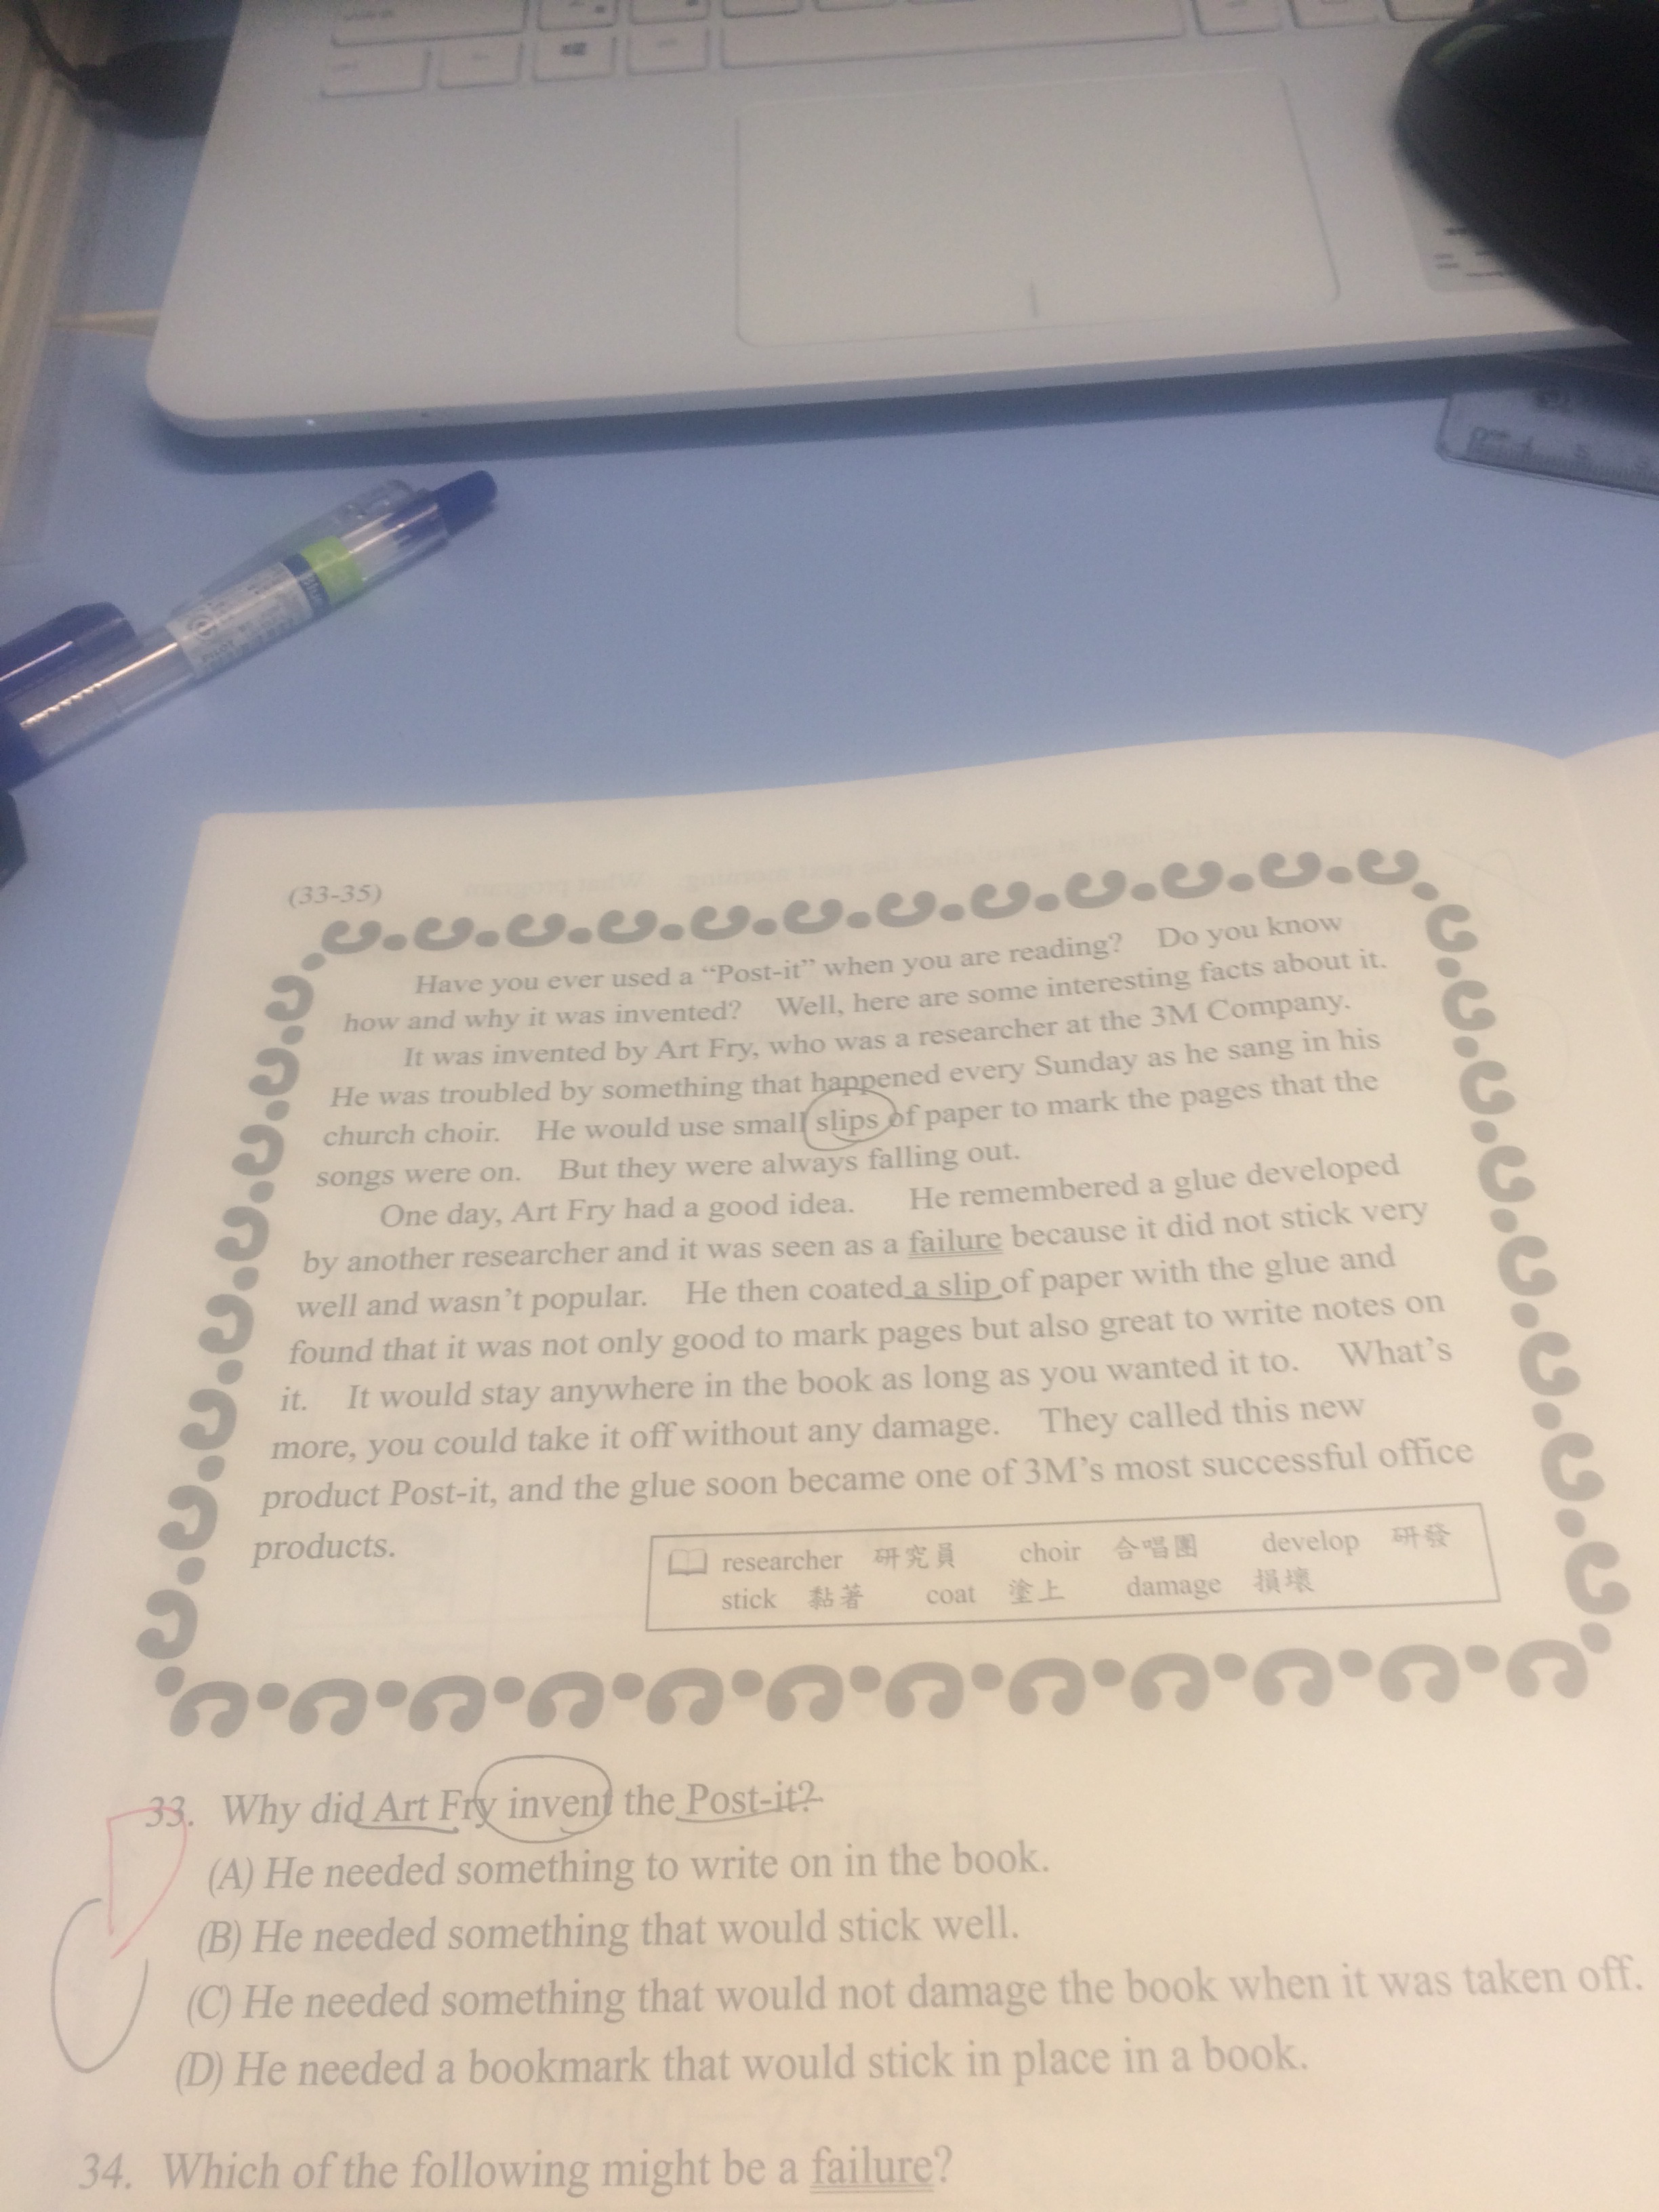 Blue
PILOT
(33-35)
Have you ever used a “Post-it” when you are reading? Do you know
how and why it was invented? Well, here are some interesting facts about it.
It was invented by Art Fry, who was a researcher at the 3M Company.
He was troubled by something that happened every Sunday as he sang in his
church choir. He would use small slips of paper to mark the pages that the
songs were on. But they were always falling out.
One day, Art Fry had a good idea. He remembered a glue developed
by another researcher and it was seen as a failure because it did not stick very
well and wasn’t popular. He then coated a slip of paper with the glue and
found that it was not only good to mark pages but also great to write notes on
it. It would stay anywhere in the book as long as you wanted it to. What’s
more, you could take it off without any damage. They called this new
product Post-it, and the glue soon became one of 3M’s most successful office
products.
researcher 研究員 choir 合唱團 develop 研發
stick 黏著 coat 塗上 damage 損壞
33. Why did Art Fry invent the Post-it?
(A) He needed something to write on in the book.
(B) He needed something that would stick well.
(C) He needed something that would not damage the book when it was taken off.
(D) He needed a bookmark that would stick in place in a book.
34. Which of the following might be a failure?